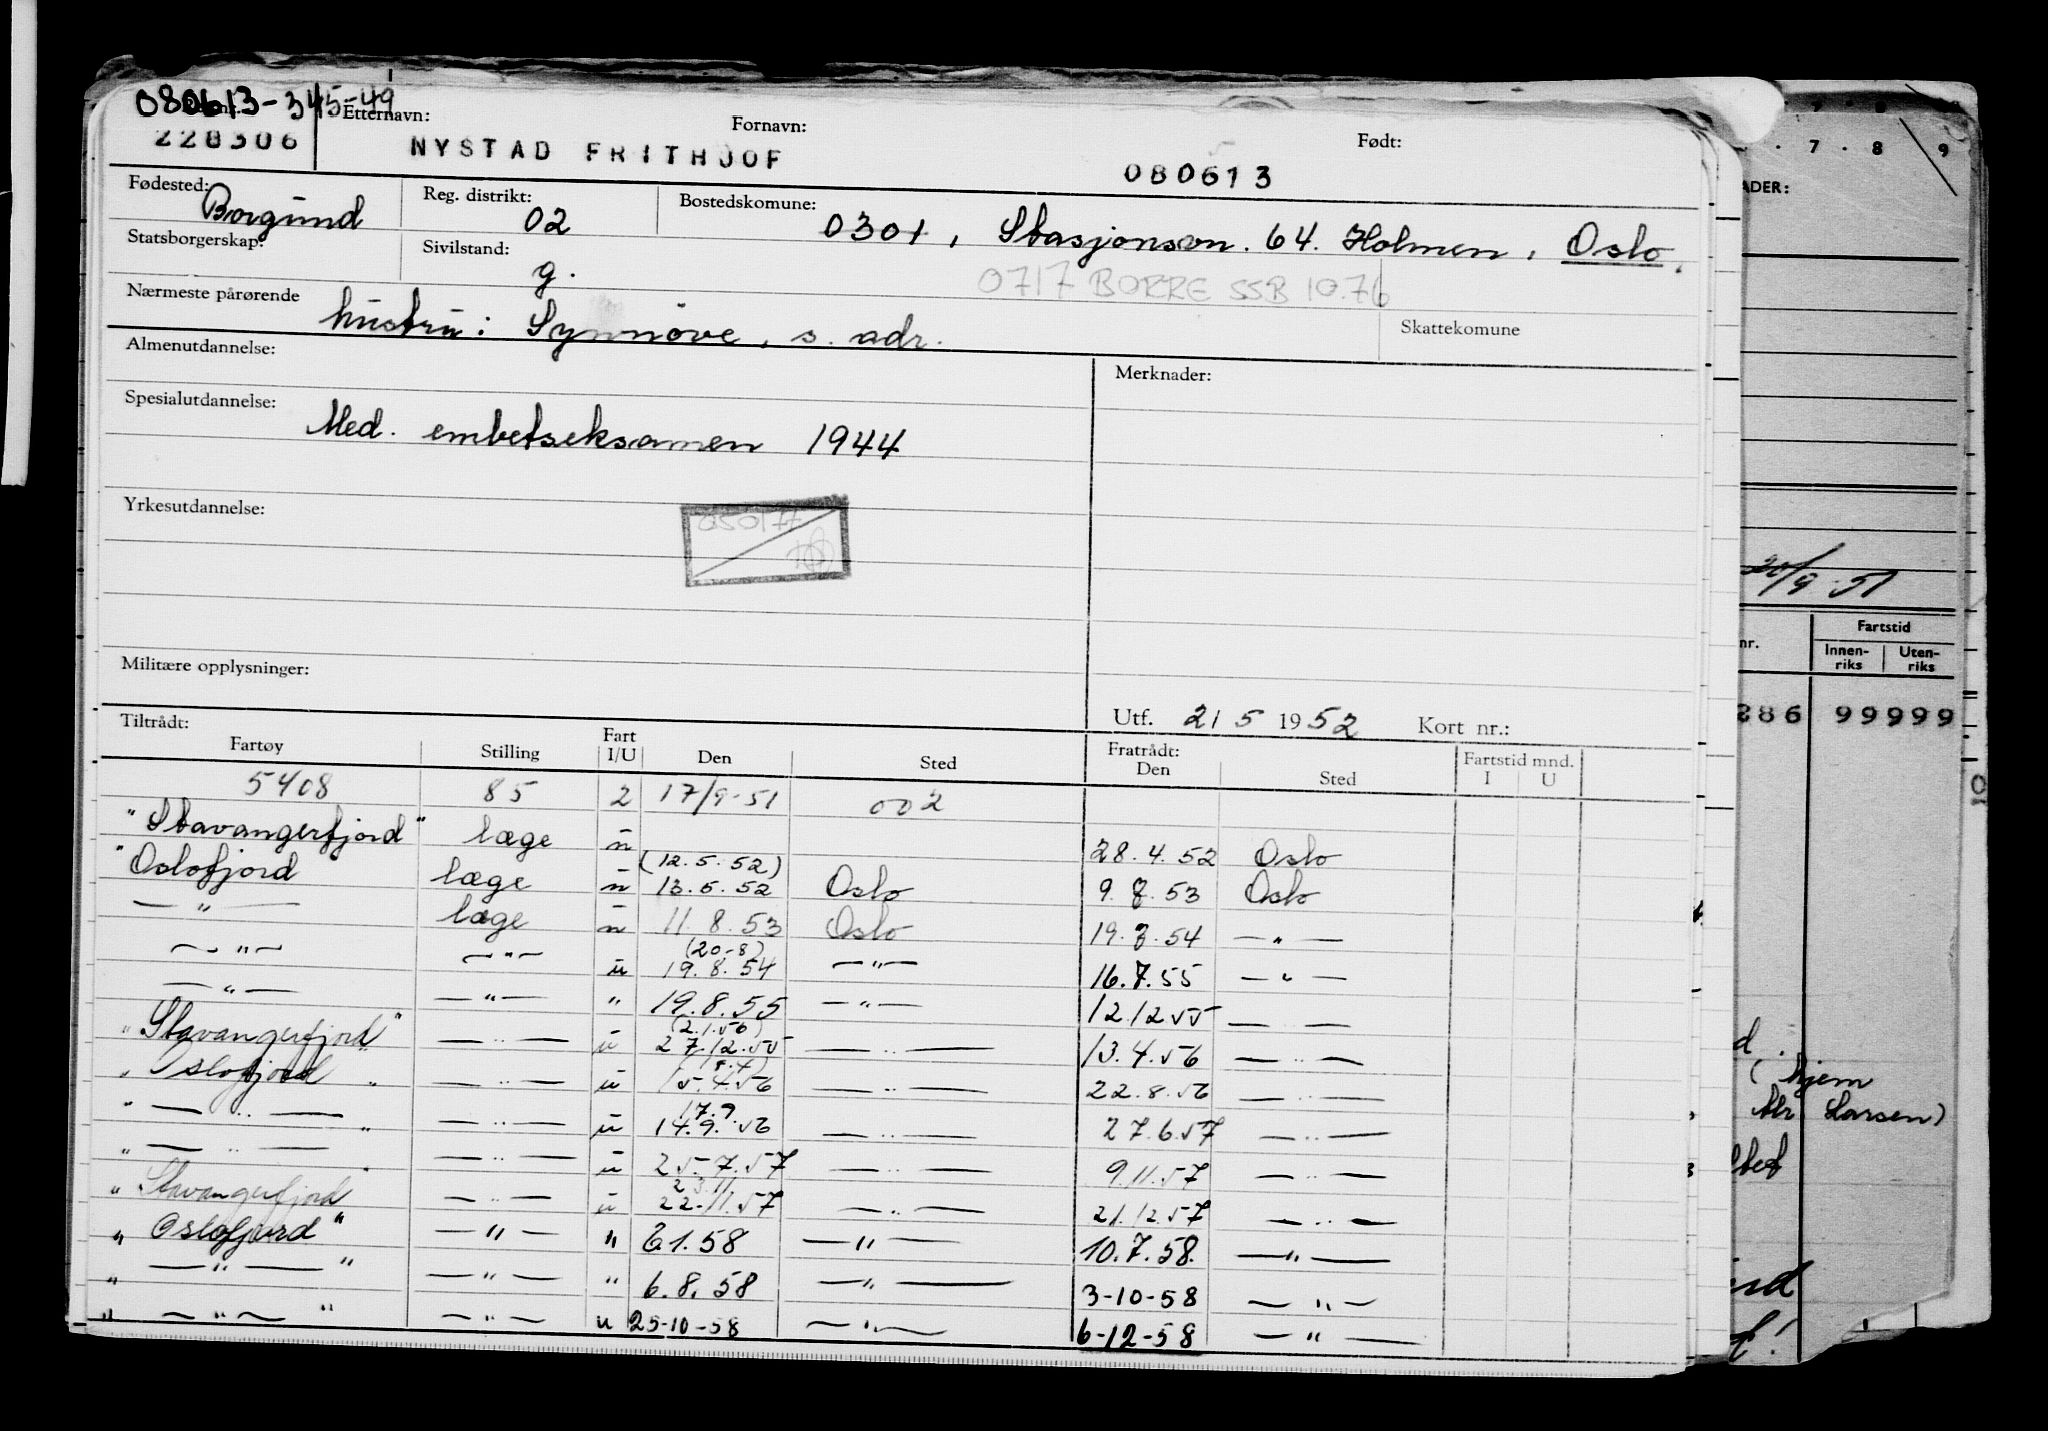 080613-345-49
228306 Etternavn: Fornavn: Født:
NYSTAD FRITHJOF 080613
Fødested: Borgund Reg. distrikt: 02 Bostedskomune: 0301, Stasjonsvn. 64. Holmen, Oslo.
Statsborgerskap: Sivilstand: g. 0717 BORRE SSB 10.76
Nærmeste pårørende hustru: Synnöve, s. adr. Skattekomune
Almenutdannelse: Merknader:
Spesialutdannelse: Med. embetseksamen 1944
Yrkesutdannelse: 050177
Militære opplysninger:
Utf. 21 5 1952 Kort nr.:
Tiltrådt: Fratrådt: Fartstid mnd.
Fartøy Stilling Fart I/U Den Sted Den Sted I U
5408 85 2 17/9-51 002
"Stavangerfjord" læge u 28.4.52 Oslo
(12.5.52)
"Oslofjord læge u 13.5.52 Oslo 9.7.53 Oslo
— " — læge u 11.8.53 Oslo 19.7.54 — " —
(20-8)
— " — — " — u 19.8.54 — " — 16.7.55 — " —
— " — — " — " 19.8.55 — " — 12.12.55 — " —
(2.1.56)
"Stavangerfjord" — " — u 27.12.55 — " — 13.4.56 — " —
"Oslofjord" — " — u 15.4.56 — " — 22.8.56 — " —
17.9.
" — " — " — " — u 14.9.56 — " — 27.6.57 — " —
" — " — " — " — u 25.7.57 — " — 9.11.57 — " —
23.11
"Stavangerfjord" — " — u 22.11.57 — " — 21.12.57 — " —
"Oslofjord" — " — " 6.1.58 — " — 10.7.58. — " —
" — " — " — " — " 6.8.58 — " — 3-10-58 — " —
" — " — " — " — u 25-10-58 — " — 6-12-58 — " —
7 . 8 . 9
ADER:
20/9-51
nr. Fartstid
Innen-riks Uten-riks
286 99999
(hjem
Larsen)